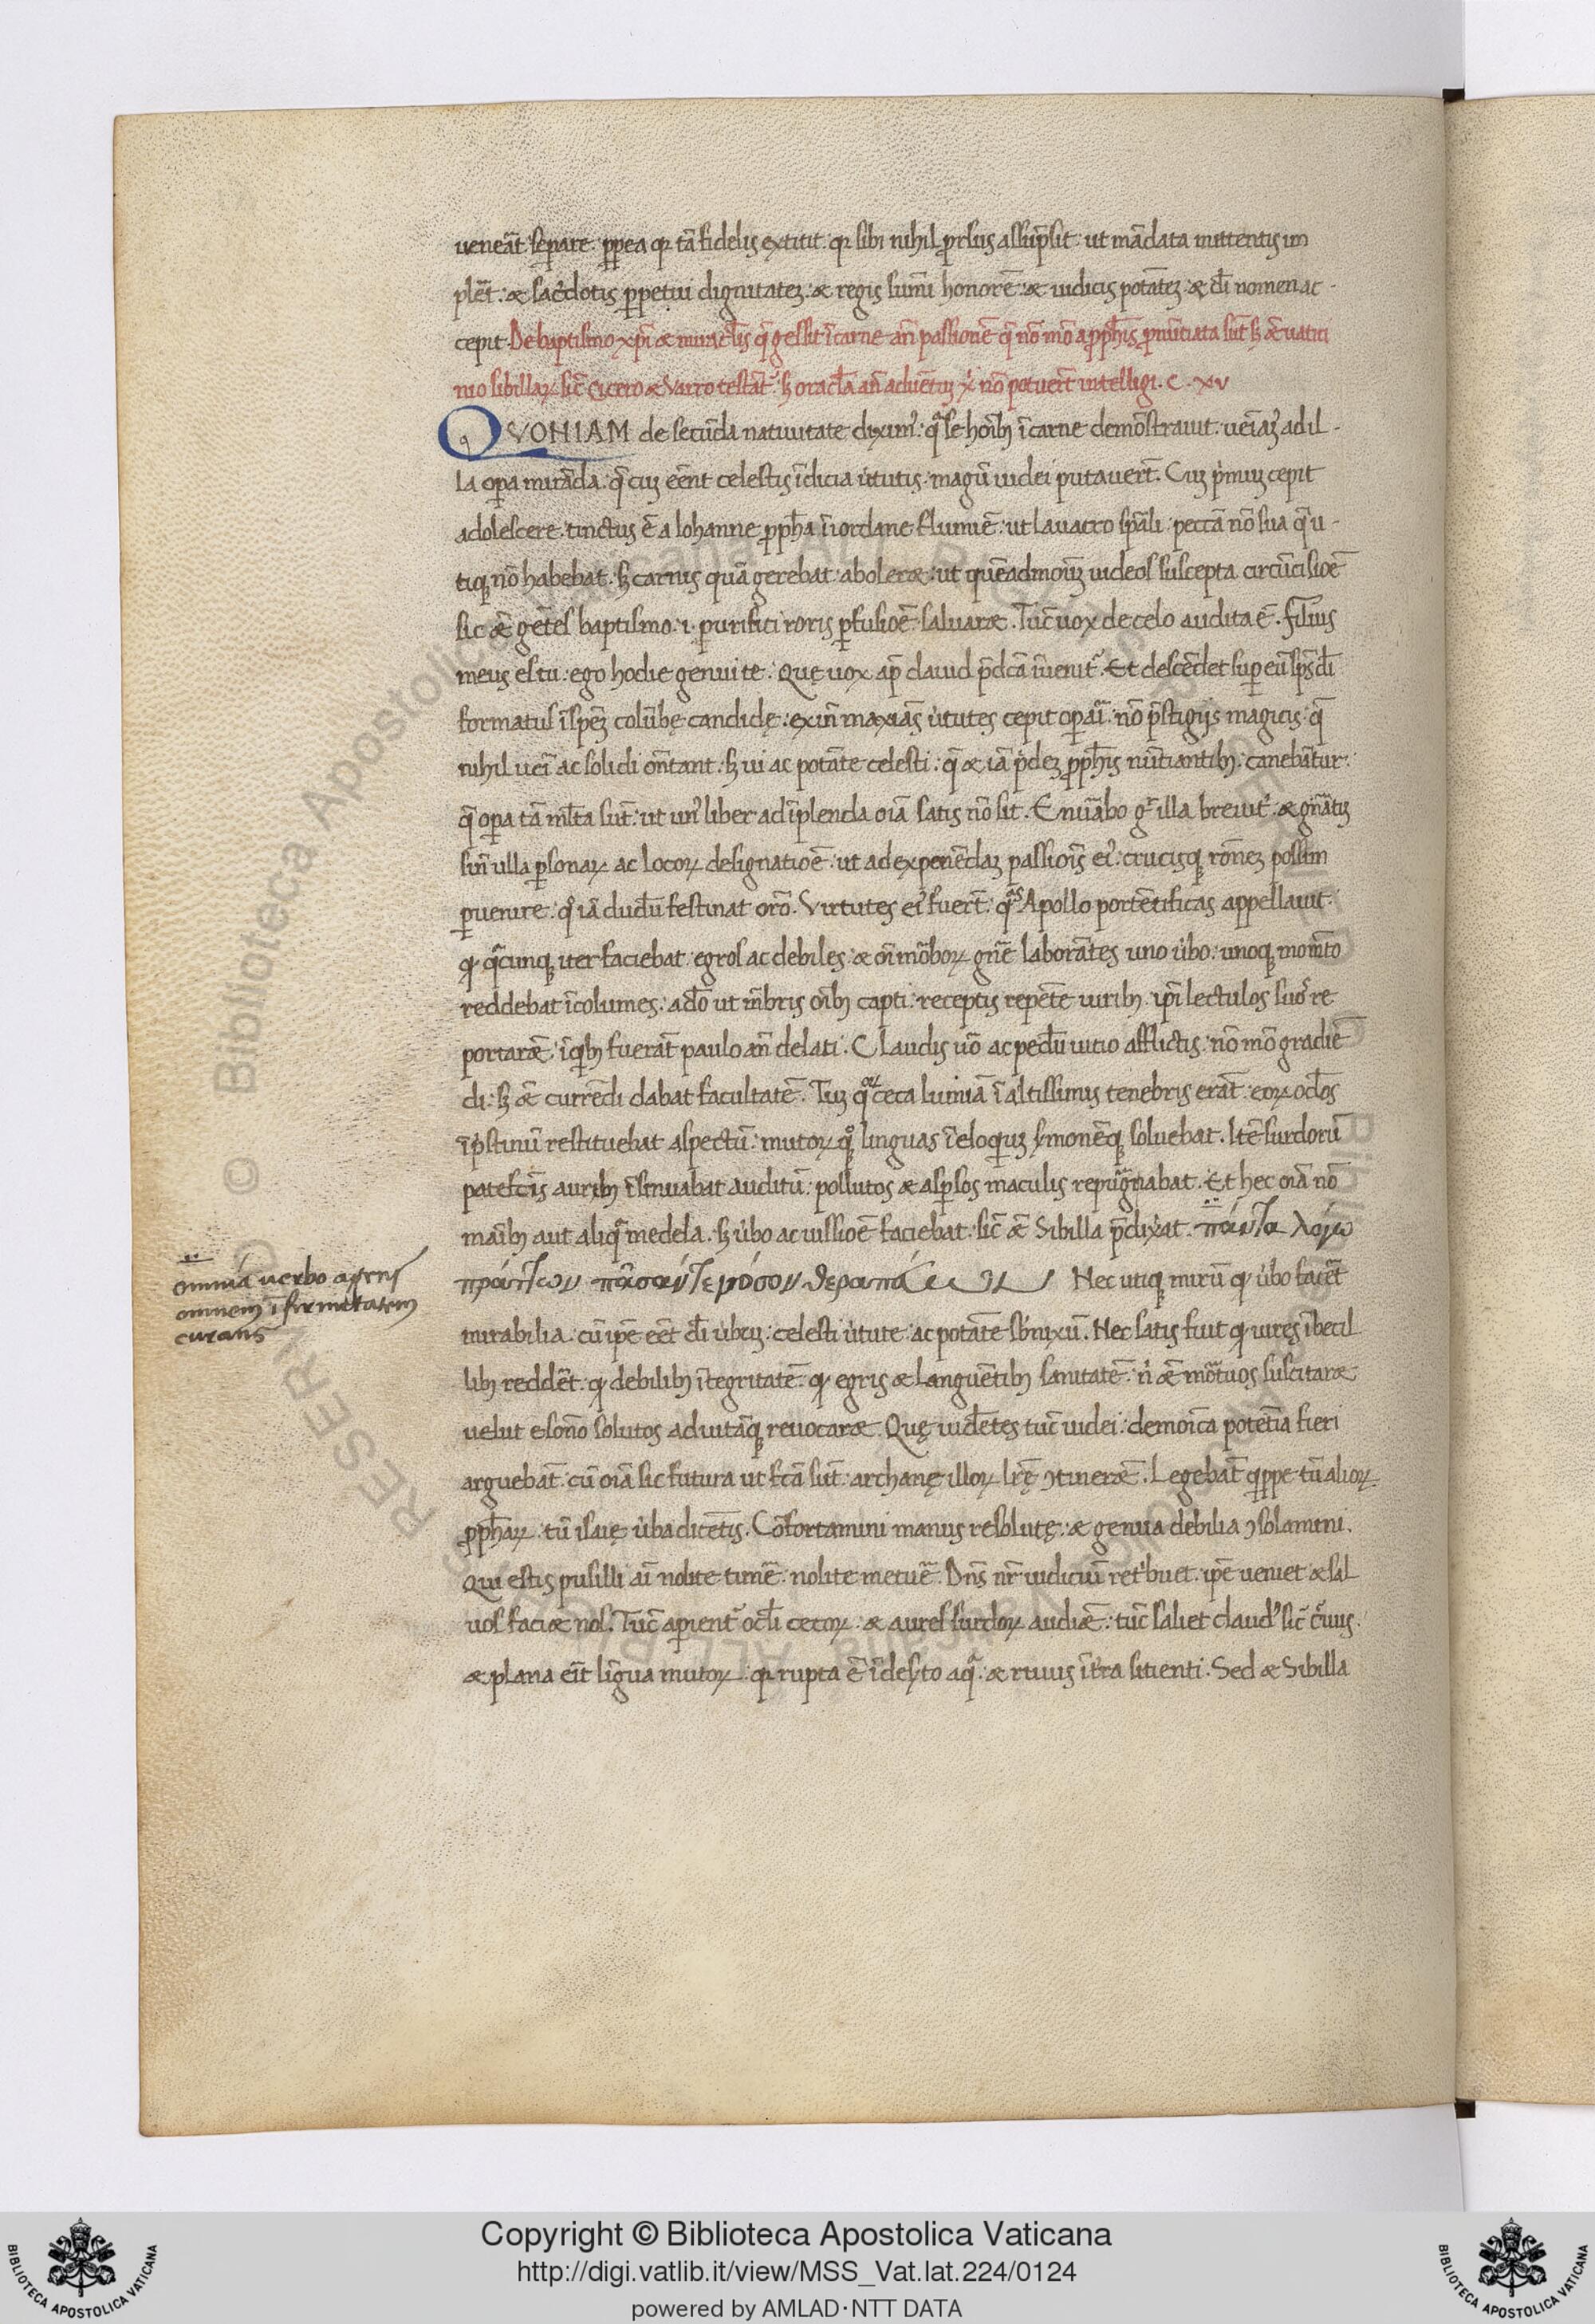 ueneãt seruare. ꝓpea qꝛ tã fidelis extitit: qꝛ sibi nihil ꝓrsus assũpsit: ut mãdata mittentis im
plẽt: & sac̃dotis ꝑpetui dignitatez: & regis sum̃i honorẽ: & iudicis potãtez: & dĩ nomen ac-
cepit. De baptismo xp̃i & mirac̃lis q̃ gessit ĩ carne añ passionẽ q̃ nõ mõ a ꝓph̃is ꝓnũtiata sũt sꝫ & uatici
nio sibillaꝝ sic̃ Cicero & Varro testãt᷑: sꝫ orac̃la añ aduẽtũ x̃ nõ potuer̃t intelligi. C. xv
QVONIAM de secũda natiuitate diximꝰ: q̃ se hoĩbꝫ ĩ carne demõstrauit: ueĩaꝫ ad il-
la oꝑa mirãda: q̃ cuꝫ eẽnt celestis ĩdicia uirtutis: magũ iudei putauer̃t. Cuꝫ pimuꝫ cepit
adolescere: tinctus ẽ a Iohanne ꝓph̃a ĩ iordane flumiẽ: ut lauacro sp̃ali: peccã nõ sua q̃ u-
tiqꝫ nõ habebat: sꝫ carnis quã gerebat: aboler&: ut quẽadmoduꝫ iudeos suscepta circũcisioẽ
sic & gẽtes baptismo .i. purifici roris ꝑfusioẽ saluar&. Tũc uox de celo audita ẽ. Filius
meus es tu: ego hodie genui te. Quę uox ap̃ dauid p̃dcã ĩuenit᷑. Et descẽdet suꝑ eũ sp̃s dĩ
formatus ĩ speẽz colũbę candidę: exiñ maxiãs uirtutes cepit oꝑaĩ: nõ p̃stigijs magicis: q̃
nihil ueĩ ac solidi oñtant: sꝫ ui ac potãte celesti: q̃ & iã pidez ꝓph̃is nũtiantibꝫ: canebãtur:
q̃ oꝑa tã ml̃ta sũt: ut unꝰ liber ad ĩplenda oĩa satis nõ sit. Enũãbo gͦ illa breuit̃: & gñãtĩ
siñ ulla ꝑsonaꝝ ac locoꝝ designatioẽ: ut ad exponẽdaz passioĩs eiꝰ: crucisqꝫ rõnez possim
ꝑuenire: qͦ iã dudũ festinat orõ. Virtutes eiꝰ fuer̃t: q̃s Apollo portẽtificas appellauit:
ꝙ q̃cunqꝫ iter faciebat: egros ac debiles: & oĩ mõboꝝ gñe laborãtes uno uerbo: unoqꝫ momẽto
reddebat ĩcolumes: adõ ut mẽbris oĩbꝫ capti: receptis repẽte uiribꝫ ip̃i lectulos suos re
portar&: ĩ qͥbꝫ fuerãt paulo añ delati. Claudis uõ ac pedũ uitio afflictis: nõ mõ gradiẽ
di: sꝫ & currẽdi dabat facultatẽ. Tuꝫ qͦꝝ ceca lumiã ĩ altissimis tenebris erãt: eoꝝ oc̃los
ĩ pistinũ restituebat aspectũ: mutoꝝ qͦqꝫ linguas ĩ eloqͥuꝫ s̃monẽqꝫ soluebat. Itẽ surdorũ
patefc̃is auribꝫ ĩsinuabat auditũ: pollutos & asꝑsos maculis repurgabat. Et hec oĩa nõ
maĩbꝫ aut aliq̃ medela. sꝫ uerbo ac iussioẽ faciebat: sic̃ & Sibilla p̃dixat. πάντα λόγω
πράττων πᾶσαν τε νόσον θεραπεύων Nec utiqꝫ mirũ ꝙ uerbo facẽt
mirabilia: cũ ip̃e eẽt dĩ uerbũ: celesti uirtute: ac potãte sbnixũ. Nec satis fuit ꝙ uires ĩbecil
libꝫ reddẽt: ꝙ debilibꝫ ĩtegritatẽ: ꝙ egris & languẽtibꝫ sanitatẽ: nĩ & mõtuos suscitar&
uelut e sõno solutos ad uitãqꝫ reuocar&. Quę uidẽtes tũc iudei: demoĩca potẽtia fieri
arguebãt: cũ oĩa sic futura ut fcã sũt: archanę illoꝝ lr̃ę ꝯtiner&. Legebãt qͥppe tũ alioꝝ
ꝓph̃aꝝ tũ isaię uerba dicẽtis. Cõfortamini manus resolutę: & genua debilia ꝯsolamini.
Qui estis pusilli aĩ nolite timẽ: nolite metuẽ. Dñs nr̃ iudiciũ ret̃buet. ip̃e ueniet & sal
uos faci& nos. Tũc aꝑient᷑ oc̃li cecoꝝ: & aures surdoꝝ audi&: tũc saliet claudꝰ sic̃ c̃uus.
& plana eĩt lĩgua mutoꝝ: qꝛ rupta ẽ ĩ des̃to aq̃: & riuus ĩ t̃ra sitienti. Sed & Sibilla
omnia uerbo agens
omnem ĩfirmitatem
curans
Copyright © Biblioteca Apostolica Vaticana
http://digi.vatlib.it/view/MSS_Vat.lat.224/0124
powered by AMLAD·NTT DATA
BIBLIOTECA APOSTOLICA VATICANA
BIBLIOTECA APOSTOLICA VATICANA